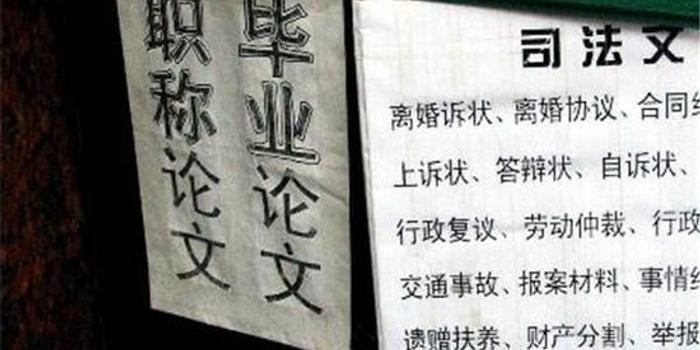 职称论文
毕业论文
司法文
离婚诉状、离婚协议、合同
上诉状、答辩状、自诉状、
行政复议、劳动仲裁、行政
交通事故、报案材料、事情
遗赠扶养、财产分割、举报